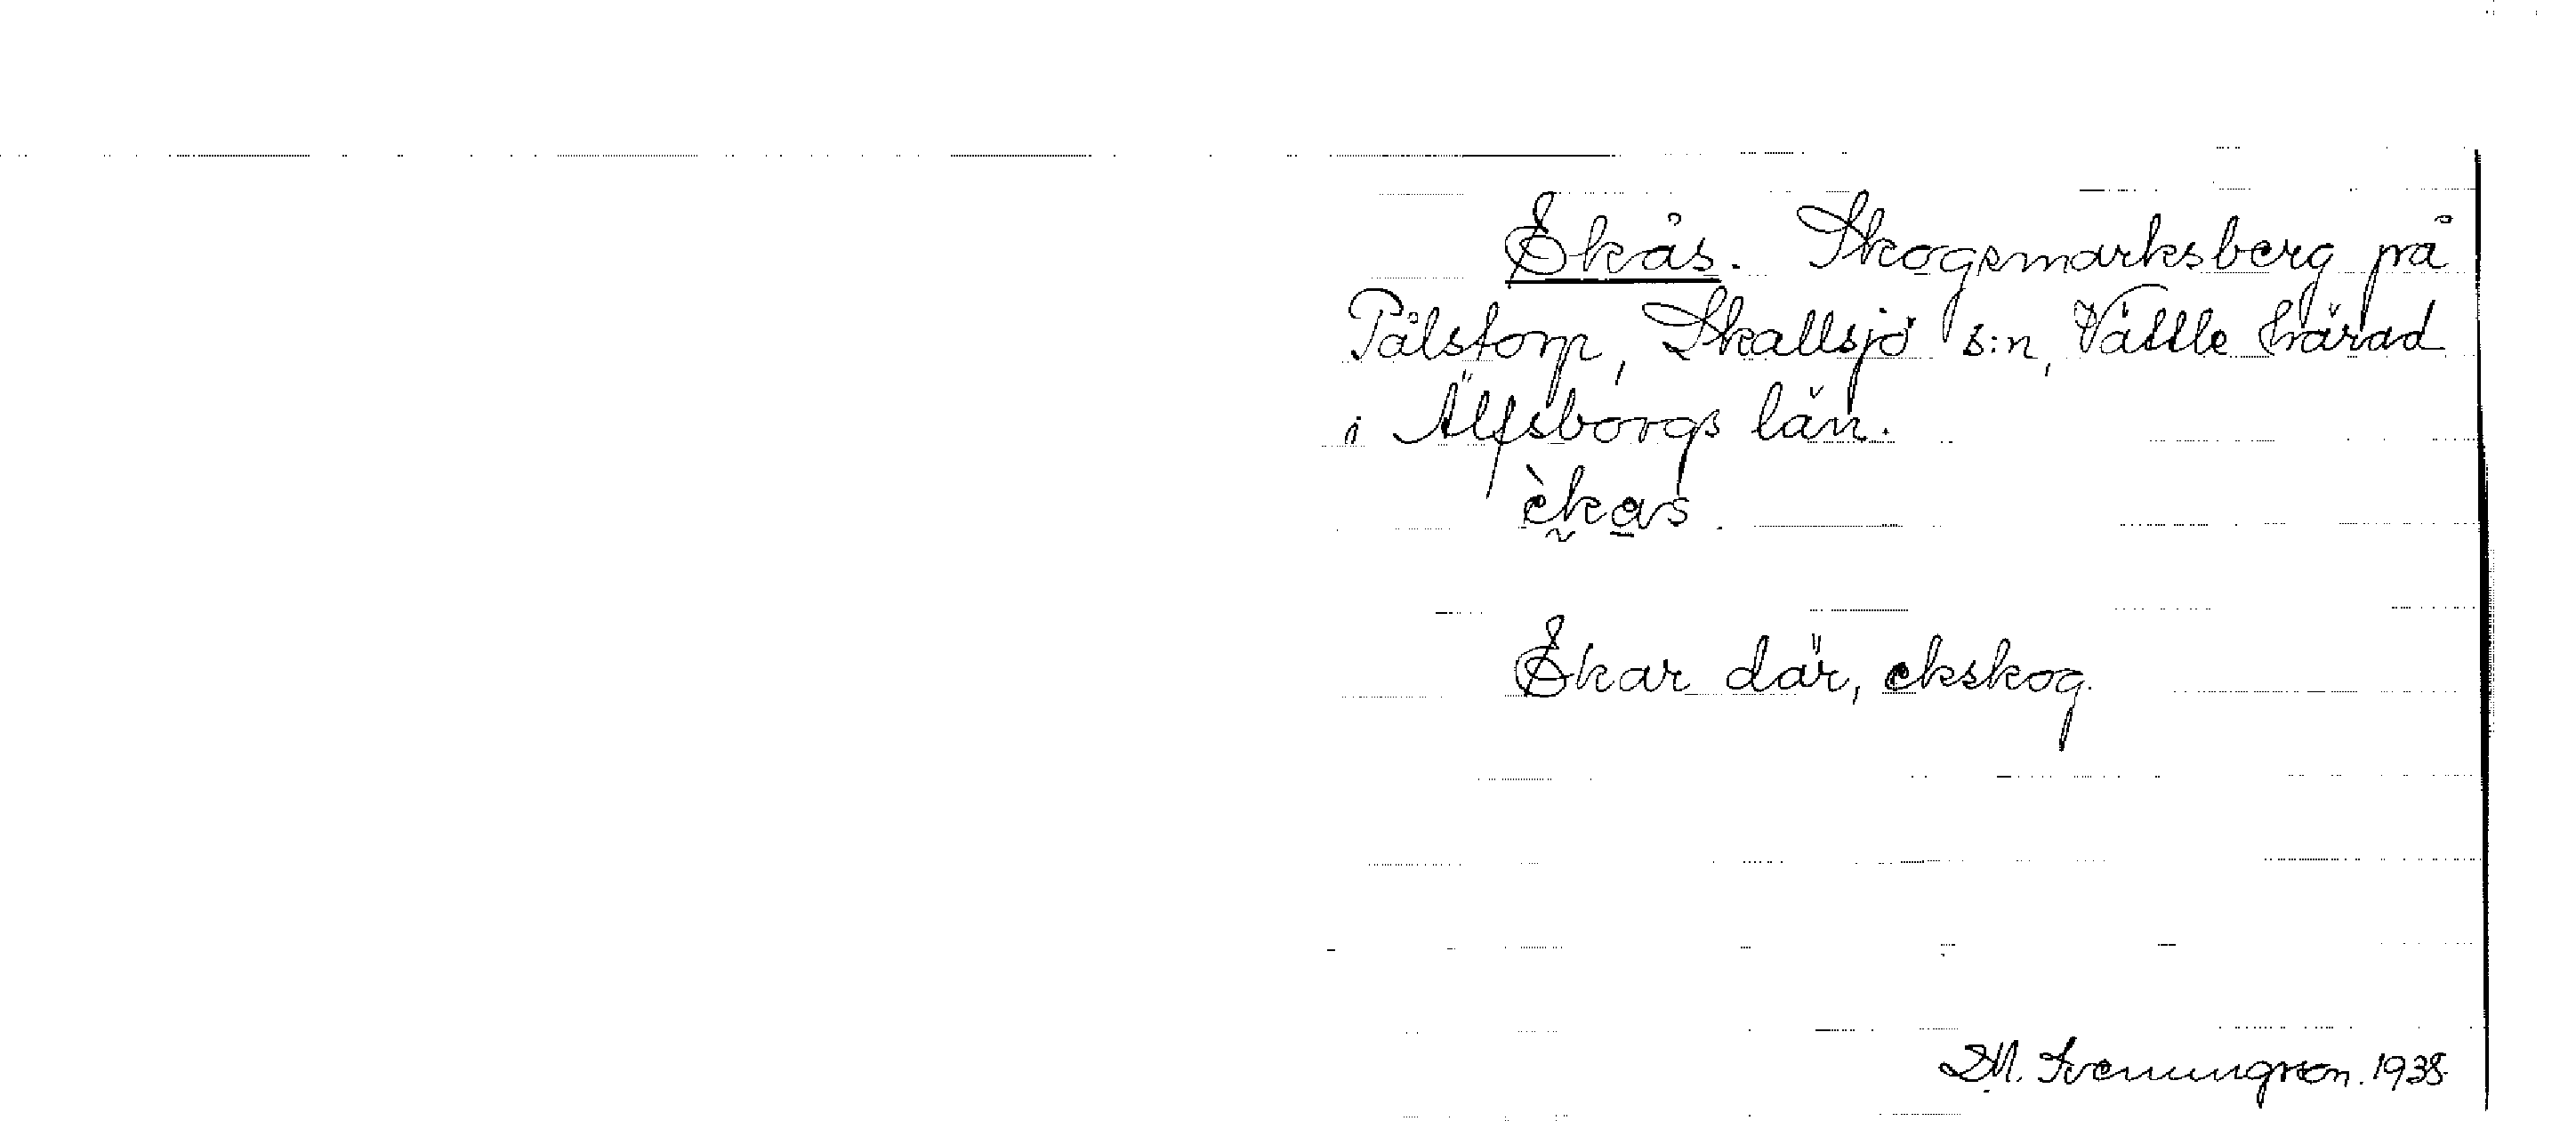 Ekås. Skogsmarksberg på
Pålstorp, Skallsjö s:n, Vättle härad
i Älfsborgs län.
èkas.
Ekar där, ekskog.
D.M. Svenungsson. 1938.